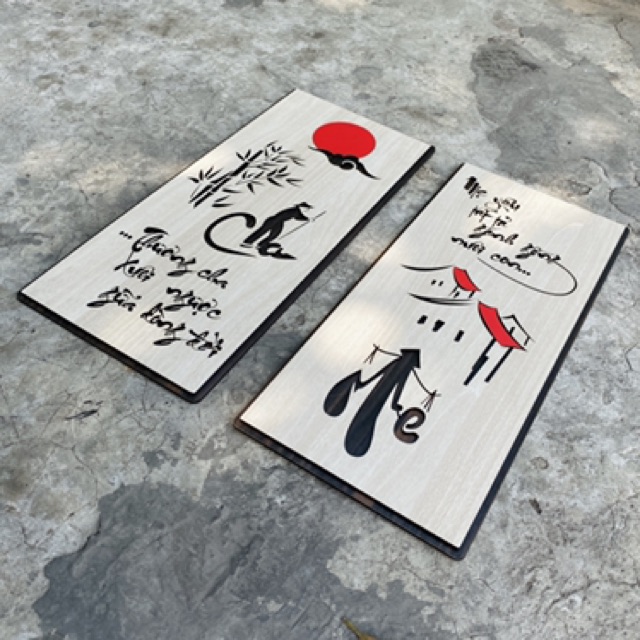 Cha
...Thương cha
Xuôi ngược
Giữa dòng đời
Mẹ
gánh gồng
nuôi con...
Mẹ